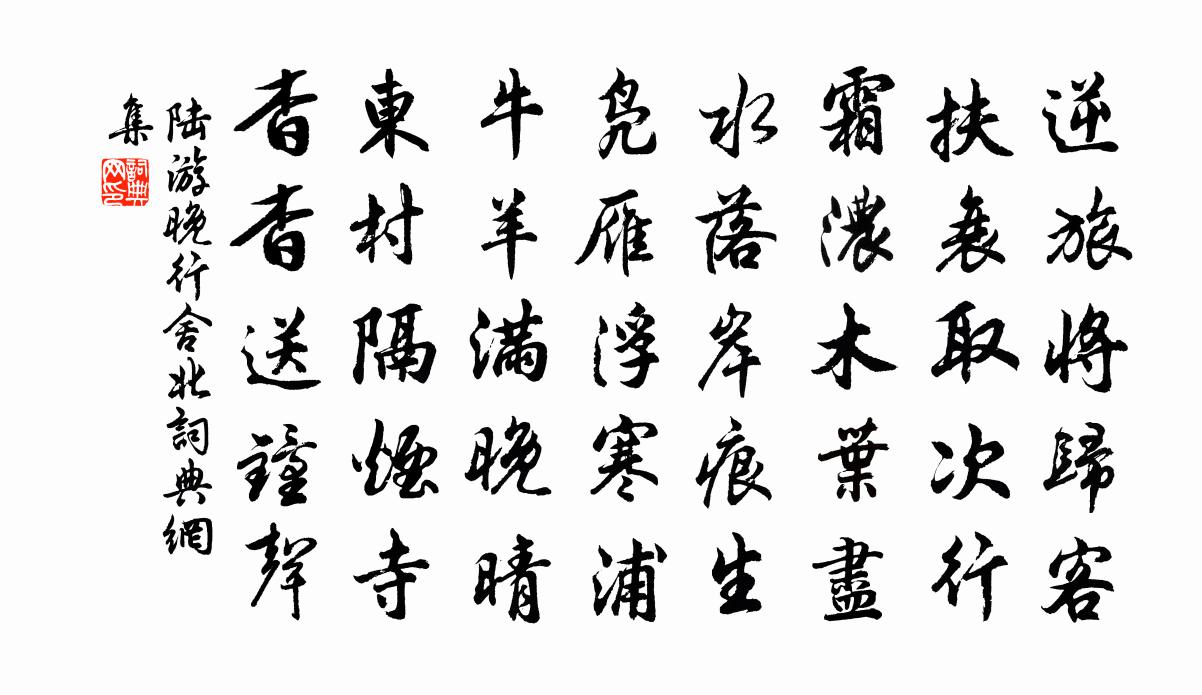 逆旅將歸客
扶衰取次行
霜濃木葉盡
水落岸痕生
鳧雁浮寒浦
牛羊滿晚晴
東村隔煙寺
杳杳送鐘聲
陆游晚行舍北詞典網
集
詞典
网印